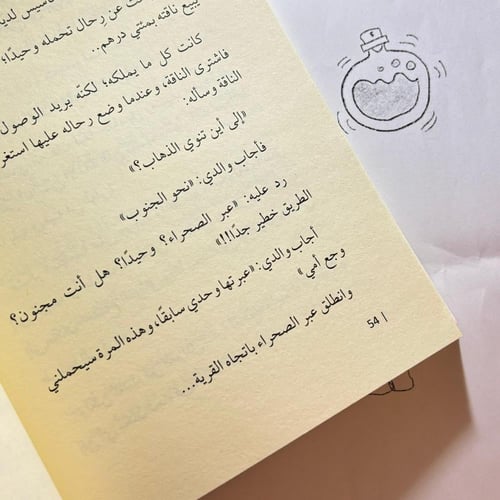 ت عن رحال تحمله وحيدًا؛
يبيع ناقته بمئتي درهم..
كانت كل ما يملكه؛ لكنّه يريد الوصول
فاشترى الناقة، وعندما وضع رحاله عليها استغر
الناقة وسأله:
«إلى أين تنوي الذهاب؟»
فأجاب والدي: «نحو الجنوب»
رد عليه: «عبر الصحراء؟ وحيدًا؟ هل أنت مجنون؟
الطريق خطير جدًا!!!»
أجاب والدي: «عبرتها وحدي سابقًا، وهذه المرة سيحملني
وجع أمي»
وانطلق عبر الصحراء باتجاه القرية...
54 |